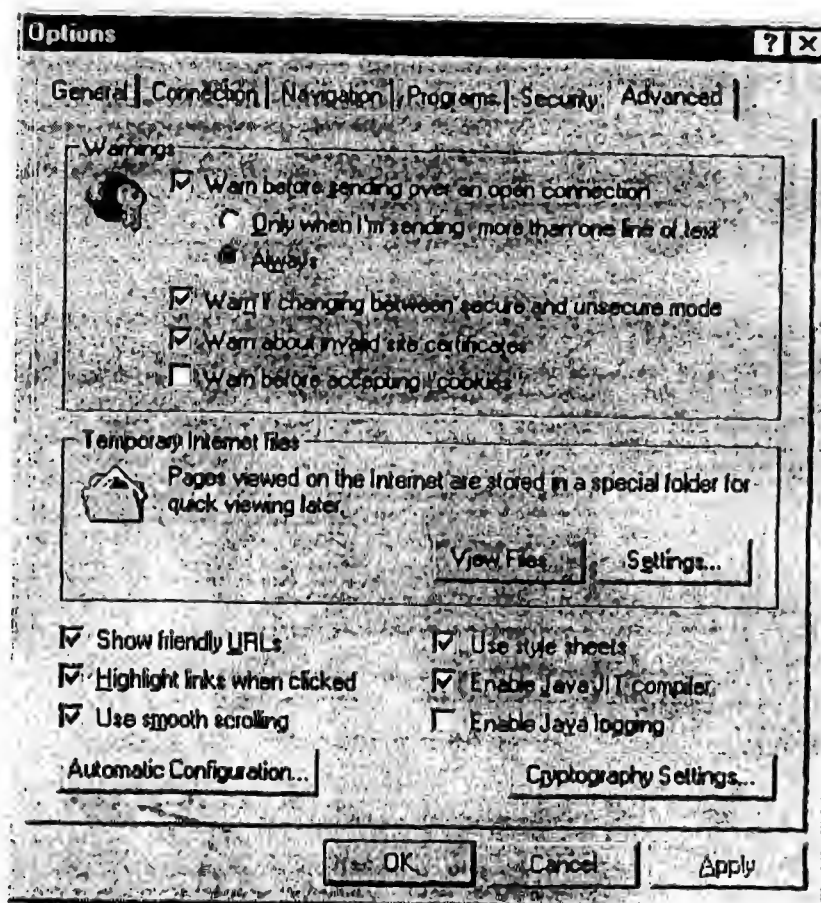 Options
General Connection Navigation Programs Security Advanced
Warnings
Warn before sending over an open connection
Only when I'm sending more than one line of text
Always
Warn if changing between secure and unsecure mode
Warn about invalid site certificates
Warn before accepting "cookies"
Temporary Internet files
Pages viewed on the Internet are stored in a special folder for
quick viewing later.
View Files... Settings...
Show friendly URLs Use style sheets
Highlight links when clicked Enable Java JIT compiler
Use smooth scrolling Enable Java logging
Automatic Configuration... Cryptography Settings...
OK Cancel Apply